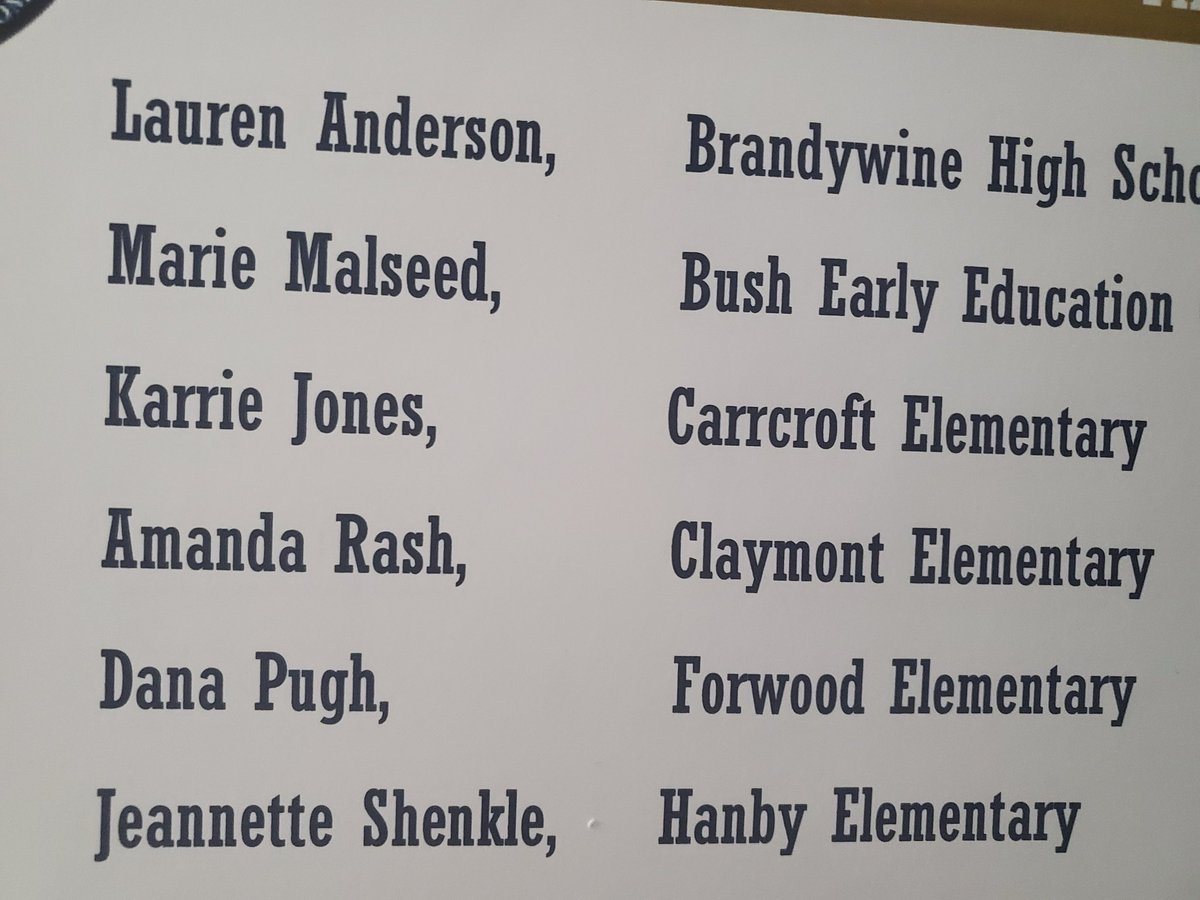 Lauren Anderson, Brandywine High
Marie Malseed, Bush Early Education
Karrie Jones, Carrcroft Elementary
Amanda Rash, Claymont Elementary
Dana Pugh, Forwood Elementary
Jeannette Shenkle, Hanby Elementary